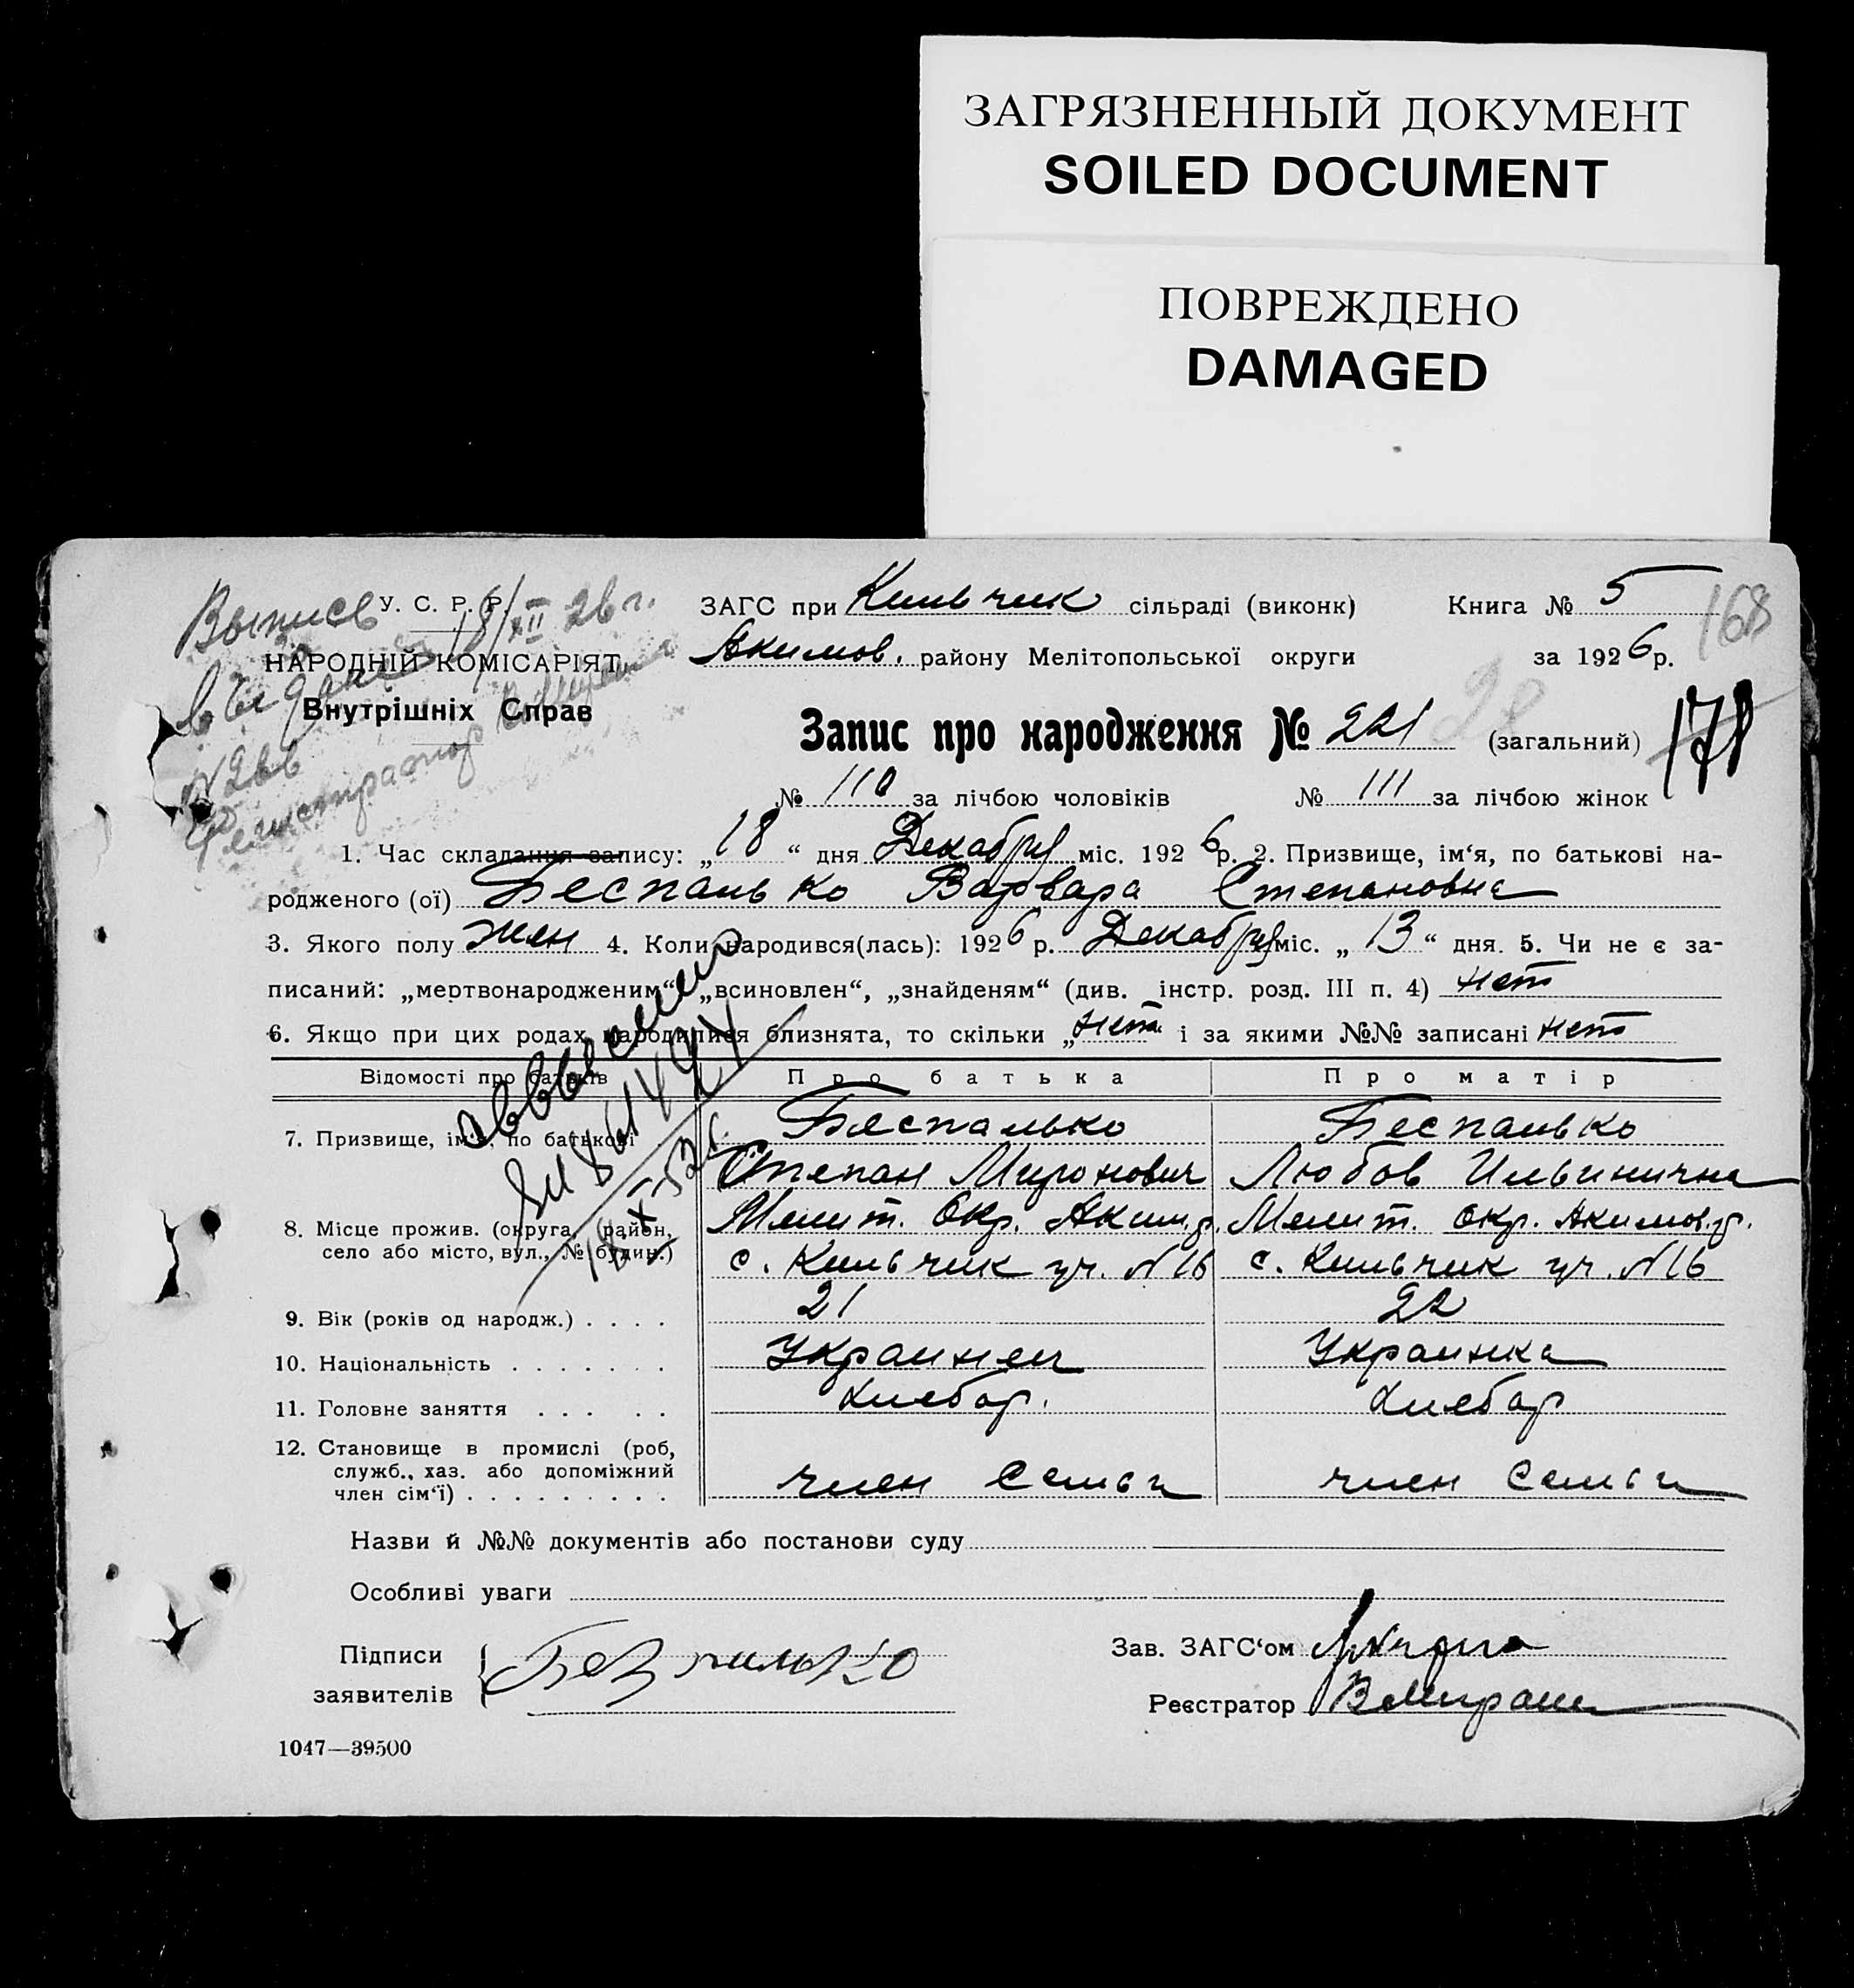 ЗАГРЯЗНЕННЫЙ ДОКУМЕНТ
SOILED DOCUMENT
ПОВРЕЖДЕНО
DAMAGED
Выпись 18/XII 26 г.
У. С. Р. Р.
НАРОДНІЙ КОМІСАРІЯТ
Внутрішніх Справ
Регистратор
ЗАГС при Кильчик сільраді (виконк) Книга № 5
168
Акимов. району Мелітопольської округи за 1926 р.
28
Запис про народження № 221 (загальний)
178
№ 110 за лічбою чоловіків № 111 за лічбою жінок
1. Час складання запису: „18“ дня Декабря міс. 1926 р. 2. Призвище, ім‘я, по батькові на-
родженого (ої) Беспалько Варвара Степановна
3. Якого полу жен 4. Коли народився(лась): 1926 р. Декабря міс. „13“ дня. 5. Чи не є за-
писаний: „мертвонародженим“ „всиновлен“, „знайденям“ (див. інстр. розд. III п. 4) нет
6. Якщо при цих родах народилися близнята, то скільки „нет“ і за якими №№ записані нет
Відомості про батьків Про батька Про матір
7. Призвище, ім‘я, по батькові Беспалько Беспалько
Степан Миронович Любов Ильинична
8. Місце прожив. (округа, район, Мелит. Окр. Аким.р. Мелит. окр. Акимов.р.
село або місто, вул., № будин.) с. Кильчик уч. N16 с. Кильчик уч. N16
9. Вік (років од народж.) . . . . 21 22
10. Національність . . . . . . . Украинец Украинка
11. Головне заняття . . . . . Хлебор. Хлебор
12. Становище в промислі (роб,
служб., хаз. або допоміжний
член сім‘ї) . . . . . . . . . член семьи член семьи
Назви й №№ документів або постанови суду
Особливі уваги
Підписи
заявителів Безпалько
Зав. ЗАГС‘ом
Реєстратор
1047—39500